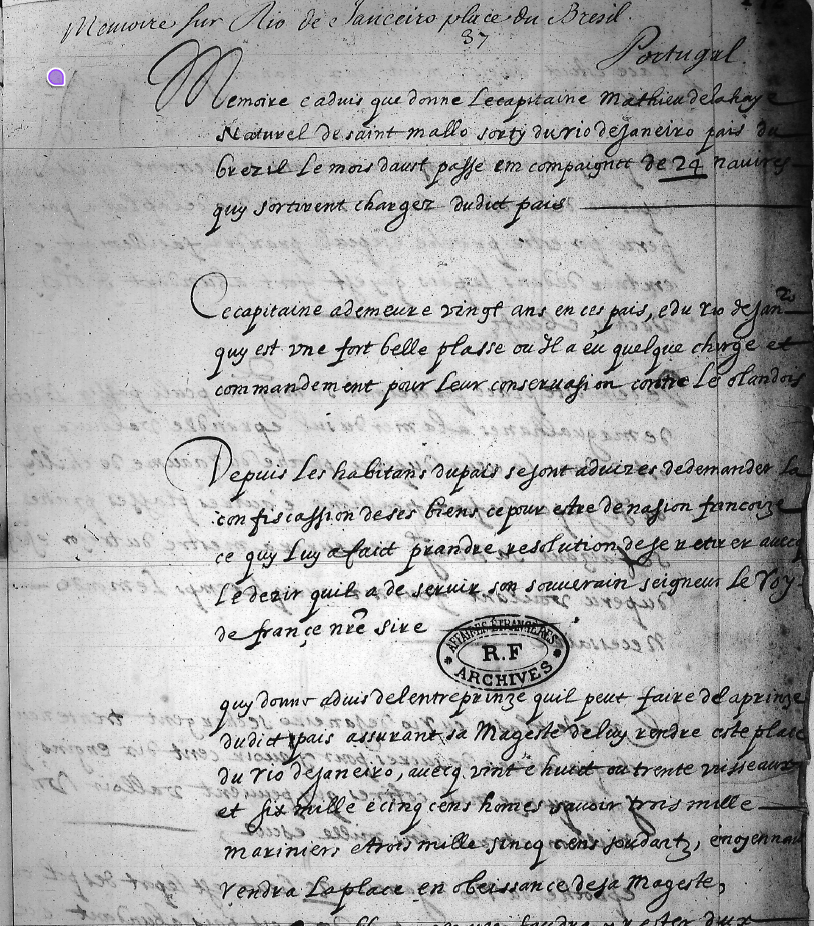 Memoire sur Rio de Janceiro place du Bresil.
37
Portugal
Memoire e aduis que donne Le capitaine Mathieu de la haye
Naturel de saint mallo sorty du rio de Janeiro pais du
brezil Le mois daust passe em compaignit de 24 navires
quy sortirent chargez dudict pais
Ce capitaine a demeure vingt ans en ces pais, e du rio de Jan.ro
quy est vne fort belle plasse ou Jl a eu quelque charge et
commandement pour Leur conservasion contre Le olandois
Depuis Les habitans du pais se sont aduizes de demander la
confiscassion de ses biens ce pour estre de nasion francoize
ce quy Luy a faict prandre resolution de se retirer auecq
Le dezir quil a de seruir son souverain seigneur Le Roy
de françe nre sire
AFFAIRES ÉTRANGÈRES
R.F
ARCHIVES
quy donne aduis de lentreprinze quil peut faire de la prinze
dudict pais assurant sa Mageste de luy rendre ceste place
du rio de janeiro, auecq vint e huict ou trente vaisseaux
et six mille e cinq cens homes savoir trois mille
mariniers e trois mille sincq cens soudartz, enoyennant
rendra La place en obeissance de sa Mageste,